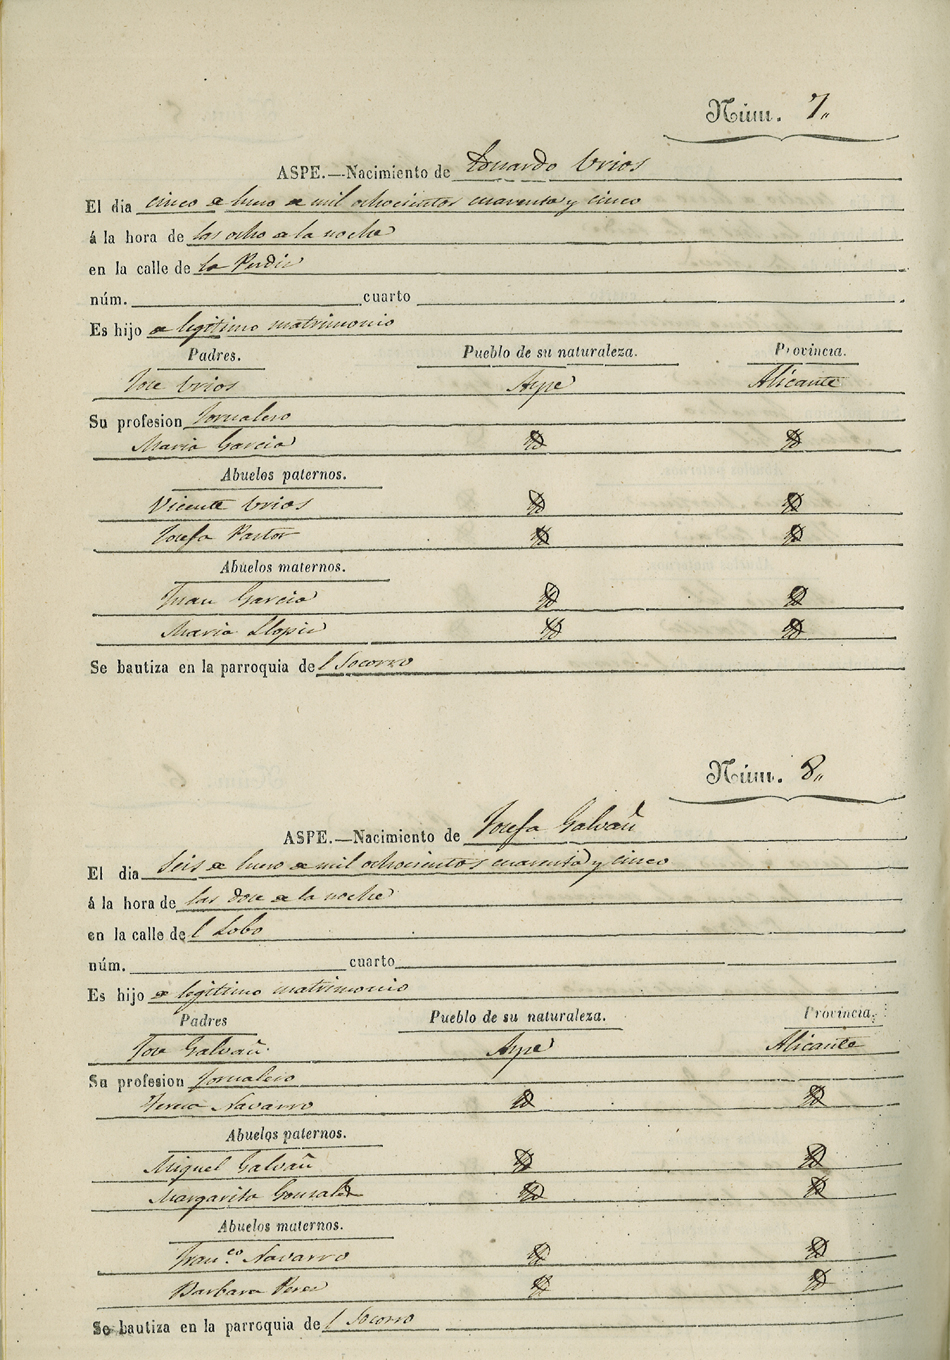 Núm. 7.
ASPE.—Nacimiento de Eduardo Urios
El dia cinco de Enero de mil ochocientos cuarenta y cinco
á la hora de las ocho de la noche
en la calle de la Perdiz
núm. cuarto
Es hijo de legitimo matrimonio
Padres. Pueblo de su naturaleza. Provincia.
Jose Urios Aspe Alicante
Su profesion Jornalero
Maria Garcia Yd Yd
Abuelos paternos.
Vicente Urios Yd Yd
Josefa Pastor Yd Yd
Abuelos maternos.
Juan Garcia Yd Yd
Maria Llopis Yd Yd
Se bautiza en la parroquia de l Socorro
Núm. 8.
ASPE.—Nacimiento de Josefa Galvañ
El dia Seis de Enero de mil ochocientos cuarenta y cinco
á la hora de las doce de la noche
en la calle de l Lobo
núm. cuarto
Es hijo de legitimo matrimonio
Padres Pueblo de su naturaleza. Provincia.
Jose Galvañ Aspe Alicante
Su profesion Jornalero
Teresa Navarro Yd Yd
Abuelos paternos.
Miguel Galvañ Yd Yd
Margarita Gonzalez Yd Yd
Abuelos maternos.
Franco. Navarro Yd Yd
Barbara Perez Yd Yd
Se bautiza en la parroquia de l Socorro